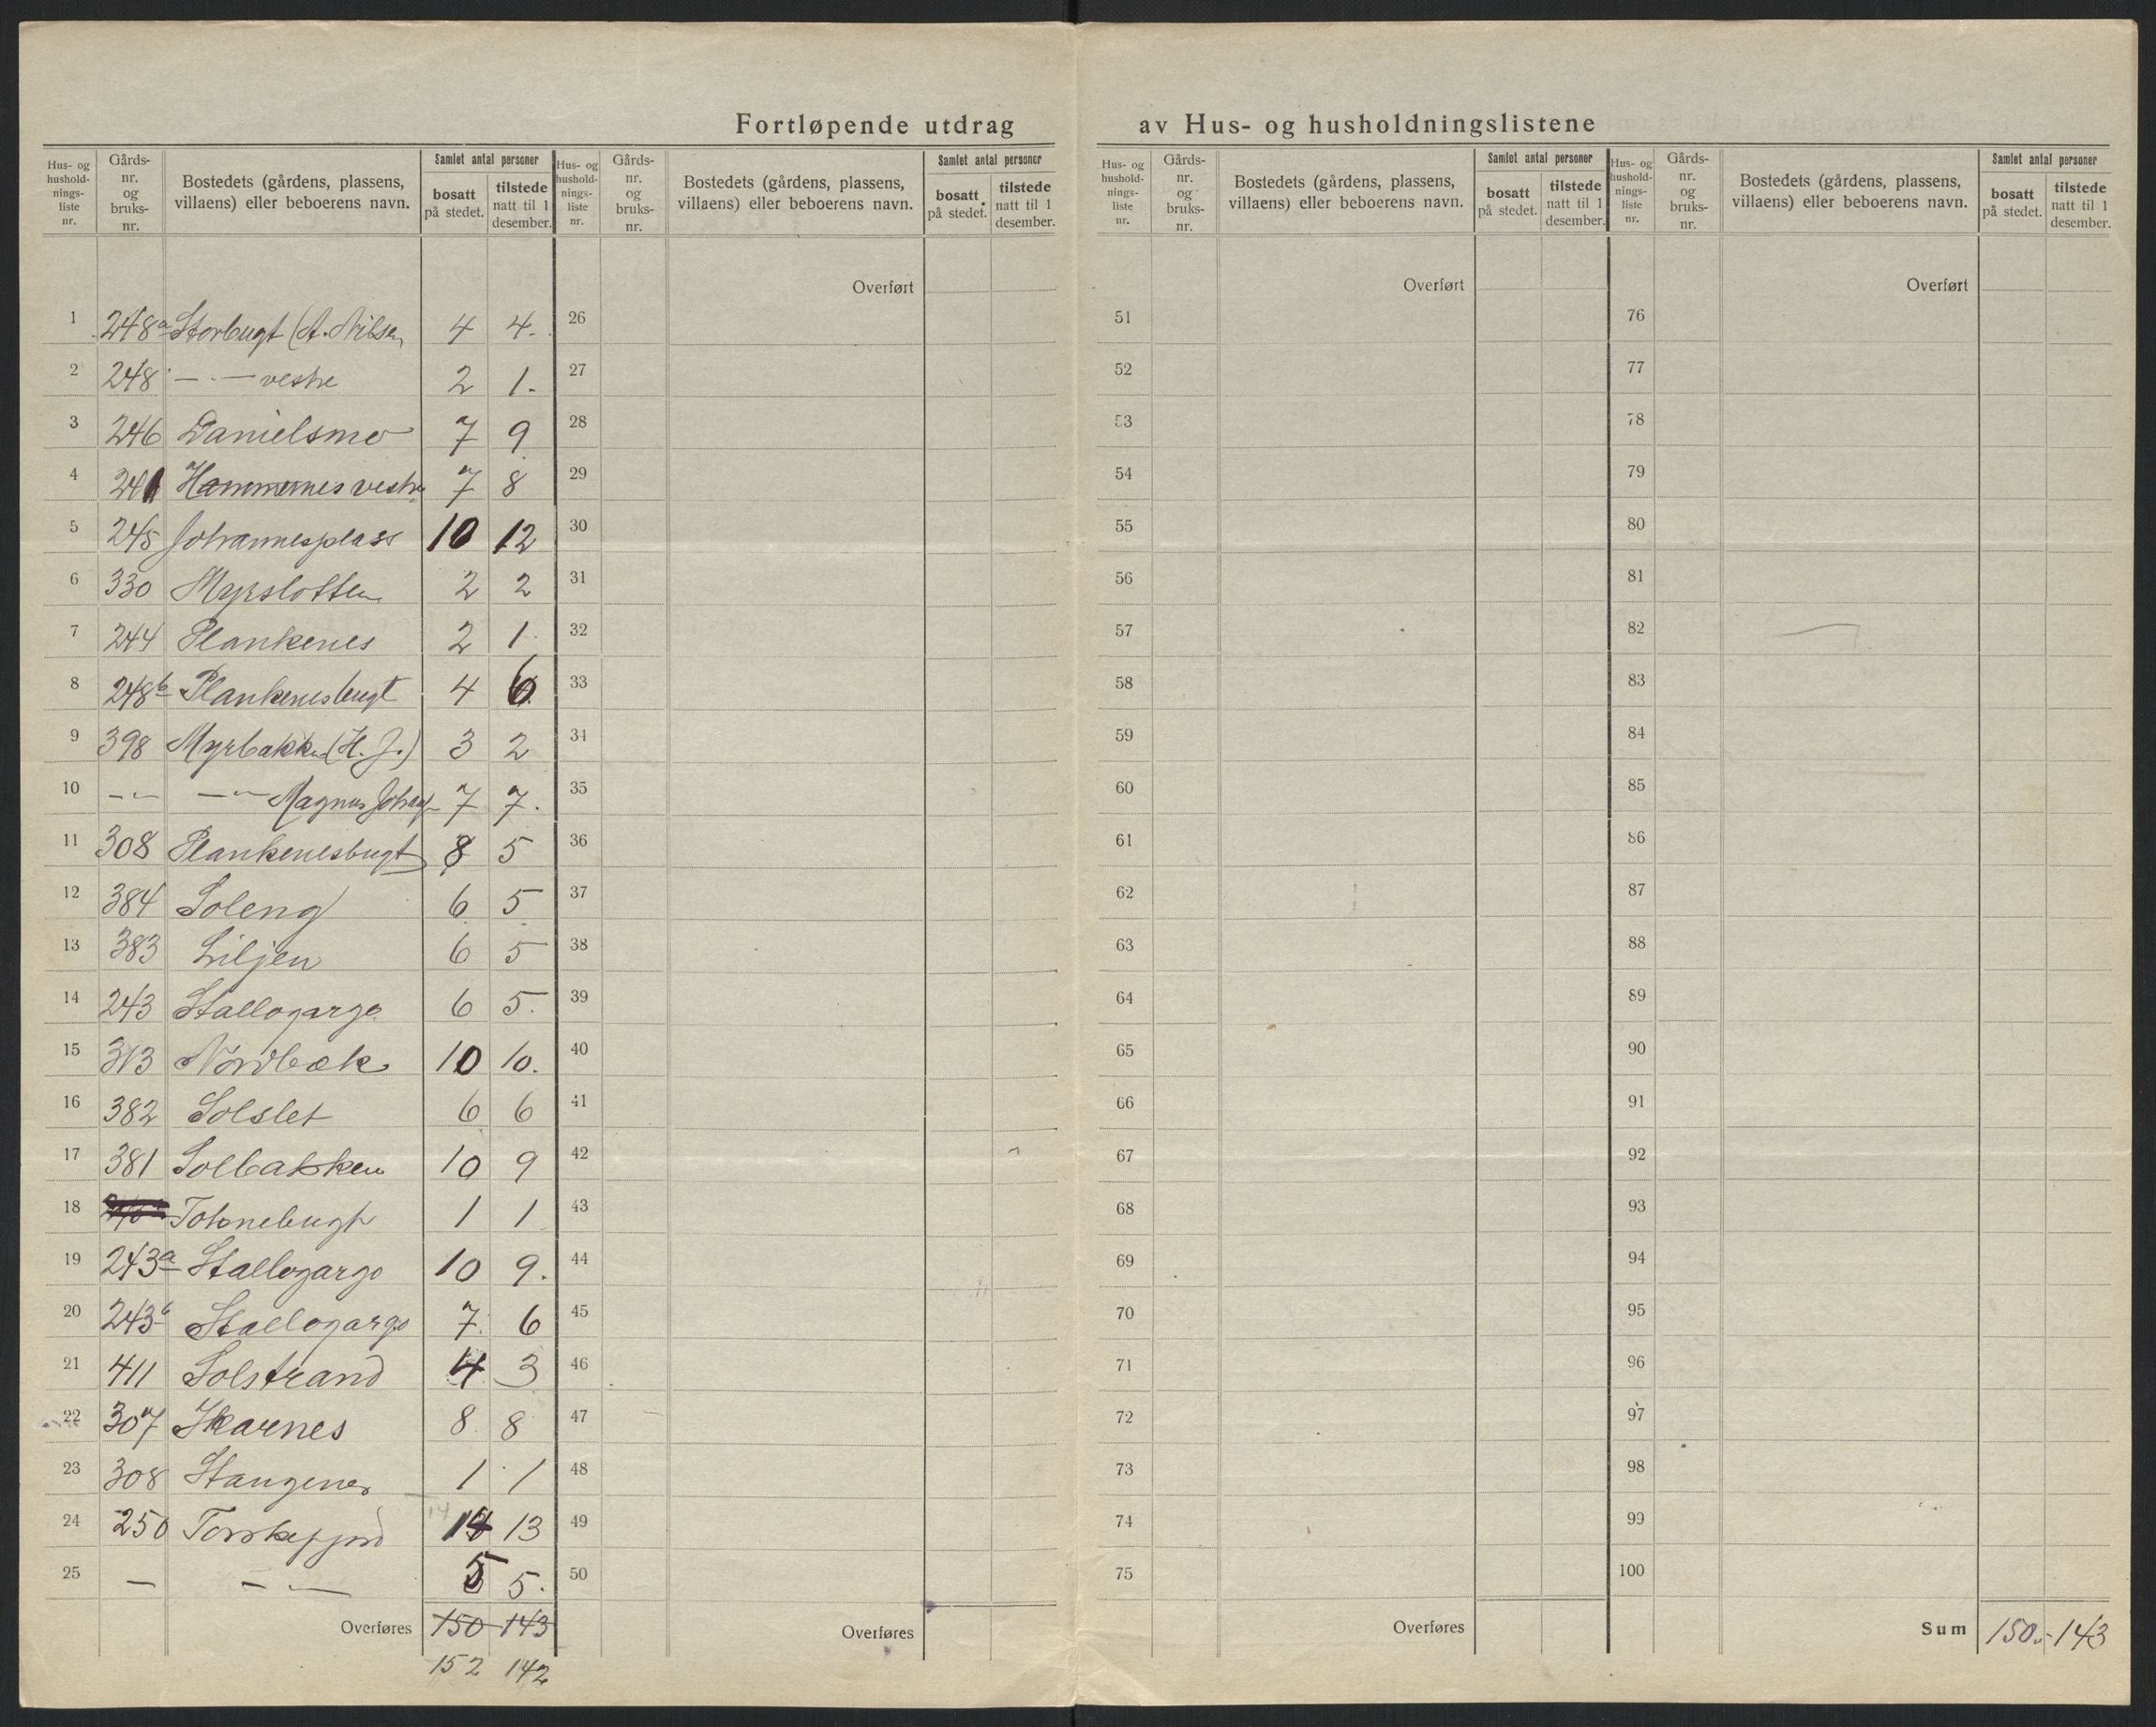 Fortløpende utdrag av Hus- og husholdningslistene
Hus- og husholdnings-liste nr. Gårds-nr. og bruks-nr. Bostedets (gårdens, plassens, villaens) eller beboerens navn. Samlet antal personer bosatt på stedet. tilstede natt til 1 desember.
Hus- og husholdnings-liste nr. Gårds-nr. og bruks-nr. Bostedets (gårdens, plassens, villaens) eller beboerens navn. Samlet antal personer bosatt på stedet. tilstede natt til 1 desember.
Hus- og husholdnings-liste nr. Gårds-nr. og bruks-nr. Bostedets (gårdens, plassens, villaens) eller beboerens navn. Samlet antal personer bosatt på stedet. tilstede natt til 1 desember.
Hus- og husholdnings-liste nr. Gårds-nr. og bruks-nr. Bostedets (gårdens, plassens, villaens) eller beboerens navn. Samlet antal personer bosatt på stedet. tilstede natt til 1 desember.
Overført Overført Overført
1 248a Storbugt (A. Nilsen 4 4. 26 51 76
2 248 — - — vestre 2 1. 27 52 77
3 246 Danielsmo 7 9 28 53 78
4 241 Hammernes vestre 7 8 29 54 79
5 245 Johannesplass 10 12 30 55 80
6 330 Myrslotten 2 2 31 56 81
7 244 Plankenes 2 1 32 57 82
8 248b Plankenesbugt 4 6 33 58 83
9 398 Myrbakken (H. J.) 3 2 34 59 84
10 — - — - Magnus 7 7. 35 60 85
11 308 Plankenesbugt 8 5 36 61 86
12 384 Soleng 6 5 37 62 87
13 383 Liljen 6 5 38 63 88
14 243 Stallogargo 6 5. 39 64 89
15 313 Nordbæk 10 10. 40 65 90
16 382 Solslet 6 6 41 66 91
17 381 Solbakken 10 9 42 67 92
18 Tohnebugt 1 1 43 68 93
19 243a Stallogargo 10 9. 44 69 94
20 243b Stallogargo 7 6 45 70 95
21 411 Solstrand 4 3 46 71 96
22 307 Skarnes 8 8 47 72 97
23 308 Stangenes 1 1 48 73 98
24 250 Torskefjord 14 13 49 74 99
25 — — - — 5 5. 50 75 100
Overføres 150 143 Overføres Overføres Sum 150.- 143
152 142